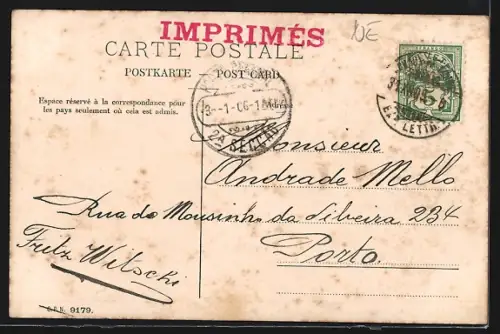 IMPRIMÉS
CARTE POSTALE
POSTKARTE POST CARD
Espace réservé à la correspondance pour
les pays seulement où cela est admis.
3--1-06-1
2A SECCAO
EXP. LETTR.
5
Monsieur
Andrade Mello
Rua de Mousinho da Silveira 234
Porto.
Fritz Witschi
9179.